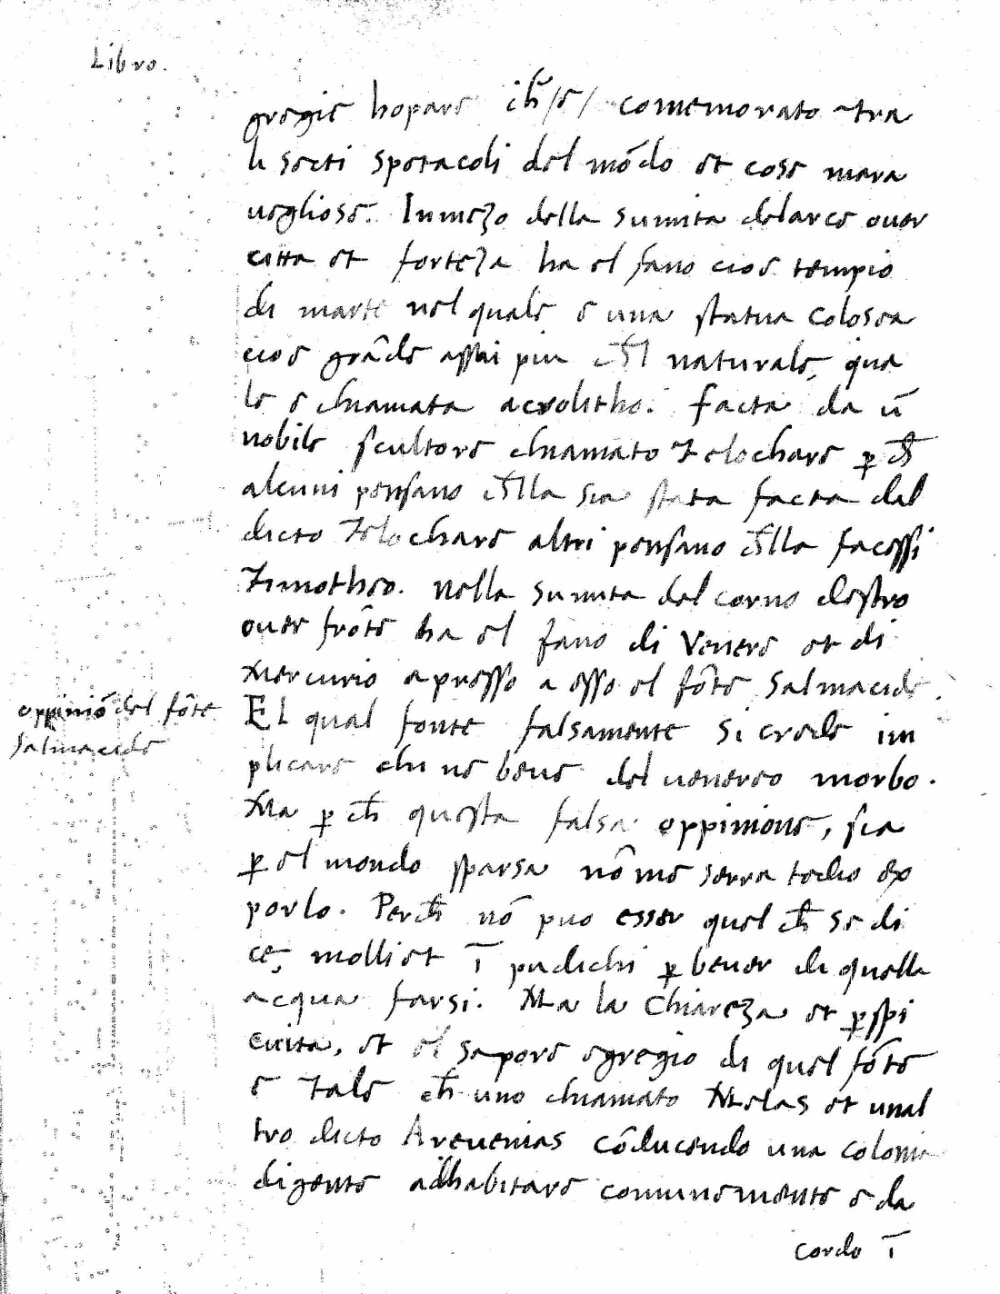 Libro.
gregie hopere ch̄ /e/ comemorato tra
li secti spetacoli del mōdo et cose mara
vegliose. Inmezo della sumita delarce over
citta et forteza ha el fano cioe tempio
di marte nel quale e una statua colosea
cioe grāde assai piu ch̄l naturale, qua
le e chiamata acrolitho. facta da ū
nobile scultore chiamato Telochare p ch̄
alcuni pensano ch̄lla sia stata facta dal
dicto Telochare altri pensano ch̄lla facessi
Timotheo. Nella sumita del corno destro
over frōte ha el fano di Venere et di
Mercurio apresso a esso el fōte Salmacide.
oppiniō del fōte
salmacide
El qual fonte falsamente si crede im
plicare chi ne beve del venereo morbo.
Ma p ch̄ questa falsa oppinione, sia
p el mondo sparsa nō me serra tedio ex
porlo. Perch̄ nō puo esser quel ch̄ se di
ce, molli et ī pudichi p bever di quella
acqua farsi. Ma la Chiareza et pspi
cuita, et el sapore egregio di quel fōte
e Tale ch̄ uno chiamato Melas et unal
tro dicto Arevenias cōducendo una colonia
digente adhabitare comunemente e da
cordo ī